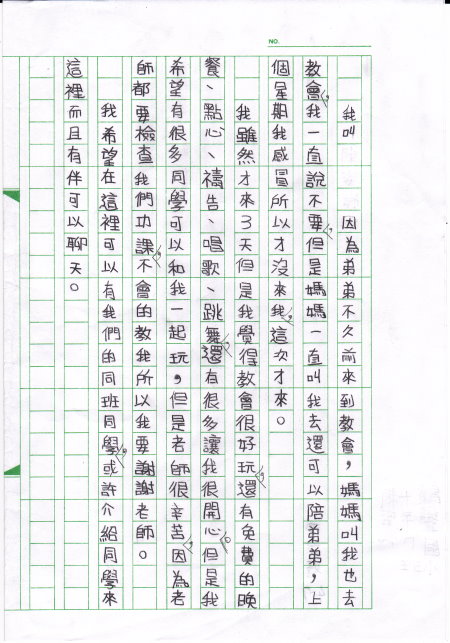 NO.
我叫　　　因為弟弟不久前來到教會，媽媽叫我也去
教會，我一直說不要，但是媽媽一直叫我去還可以陪弟弟，上
個星期我感冒所以才沒來我，這次才來。
我雖然才來3天但是我覺得教會很好玩，還有免費的晚
餐、點心、禱告、唱歌、跳舞，還有很多讓我很開心。但是我
希望有很多同學可以和我一起玩，但是老師很辛苦，因為老
師都要檢查我們功課，不會的教我所以我要謝謝老師。
我希望在這裡可以有我們的同班同學，或許介紹同學來
這裡而且有伴可以聊天。